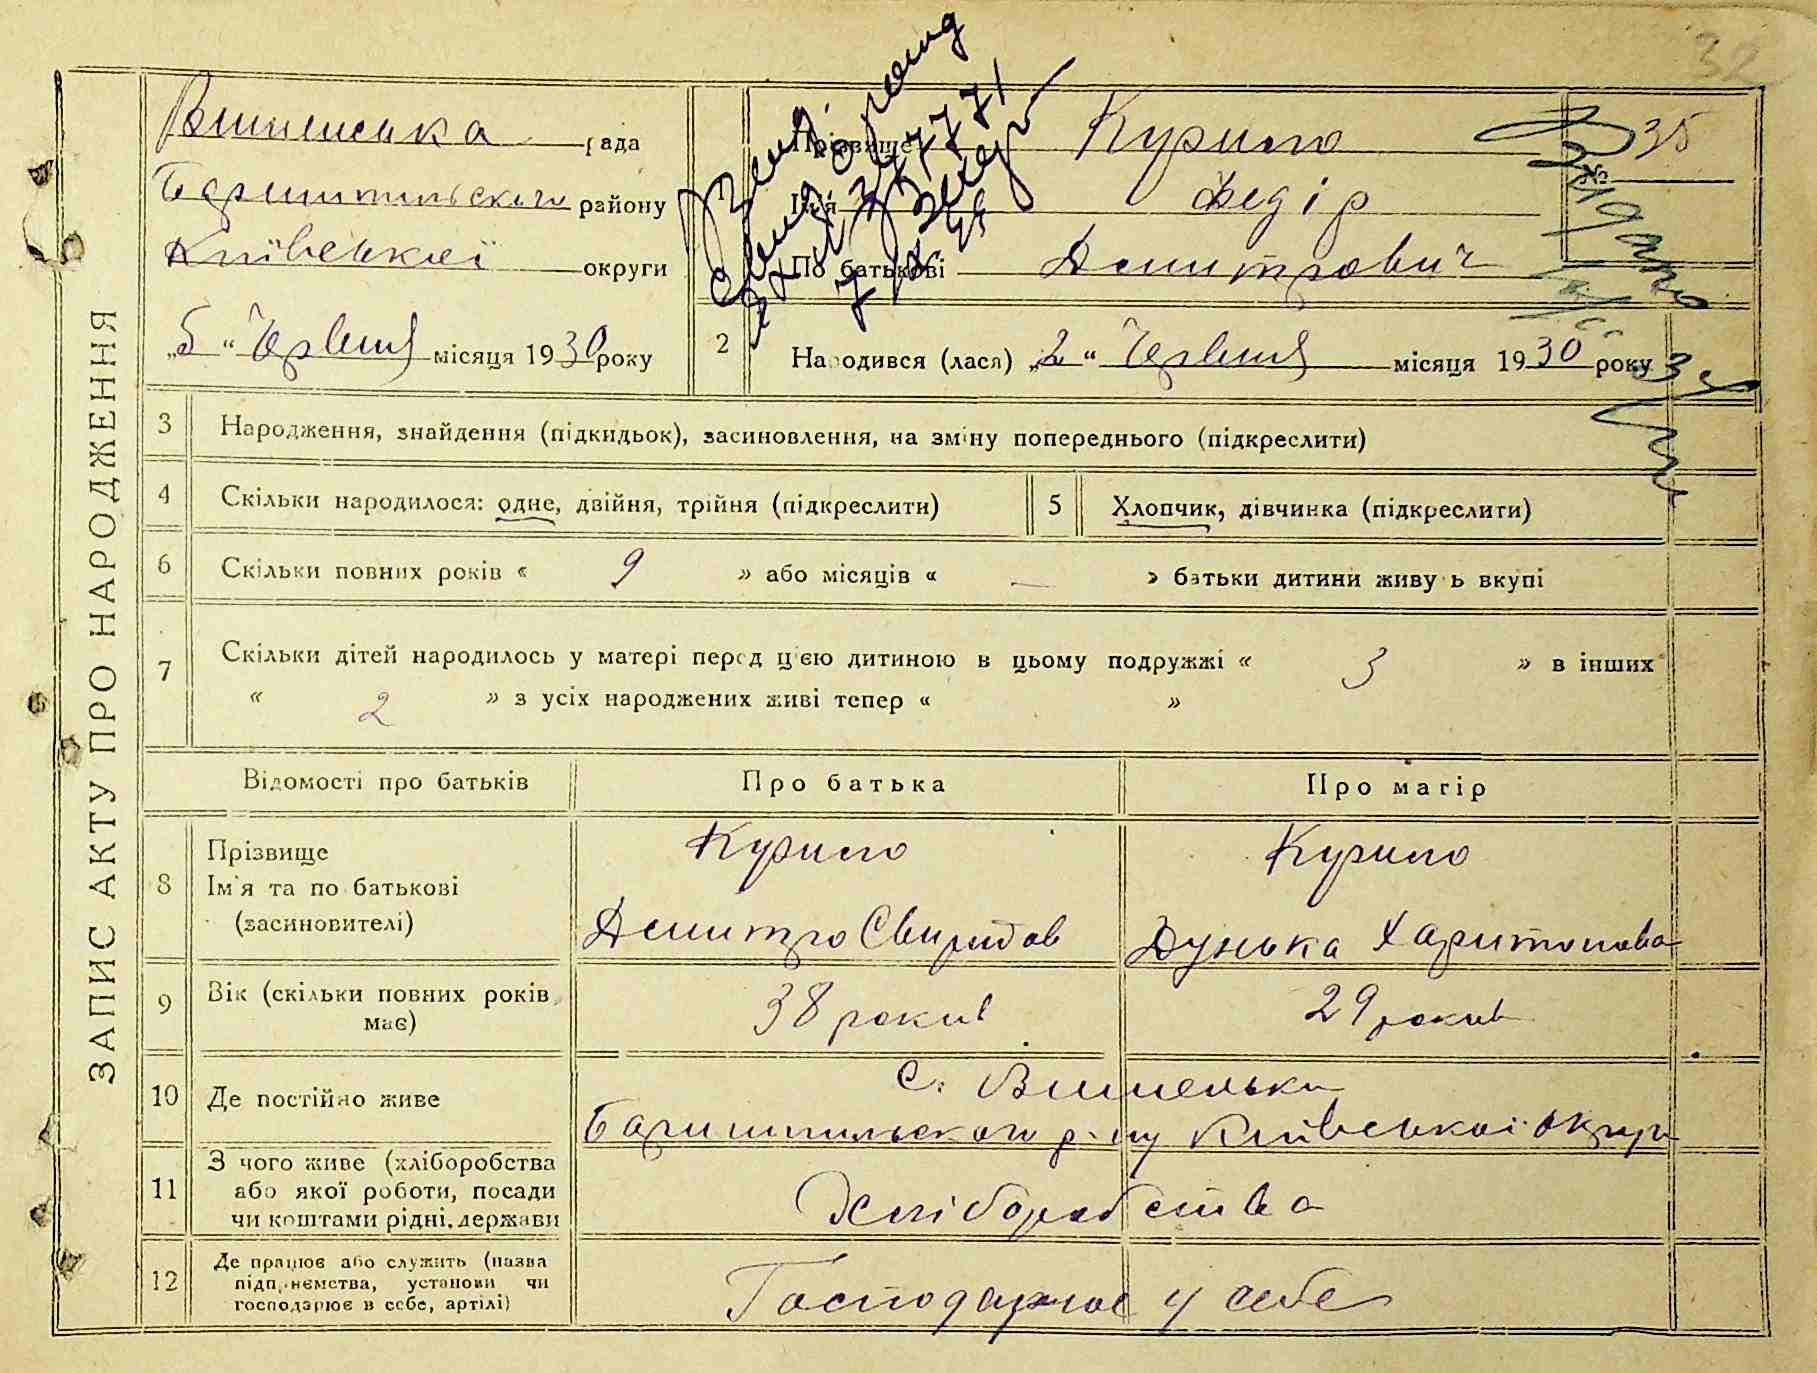 32
ЗАПИС АКТУ ПРО НАРОДЖЕННЯ
Вишенська рада
Баришпильського району
Київської округи
„5“ Червня місяця 1930 року
35
1 Прізвище Курило
Ім'я Федір
По батькові Дмитрович
2 Народився (лася) „2“ Червня місяця 1930 року
3 Народження, знайдення (підкидьок), засиновлення, на зміну попереднього (підкреслити)
4 Скільки народилося: одне, двійня, трійня (підкреслити)
5 Хлопчик, дівчинка (підкреслити)
6 Скільки повних років « 9 » або місяців « — » батьки дитини живуть вкупі
7 Скільки дітей народилось у матері перед цією дитиною в цьому подружжі « 3 » в інших
« 2 » з усіх народжених живі тепер « »
Відомості про батьків Про батька Про матір
8 Прізвище Курило Курило
Ім'я та по батькові
(засиновителі) Дмитро Свиридов Дунька Харитонова
9 Вік (скільки повних років має) 38 років 29 років
10 Де постійно живе с. Вишеньки
Баришпильського р-ну Київської округи
11 З чого живе (хліборобства
або якої роботи, посади
чи коштами рідні, держави Хліборобства
12 Де працює або служить (назва
підприємства, установи чи
господарює в себе, артілі) Господарює у себе